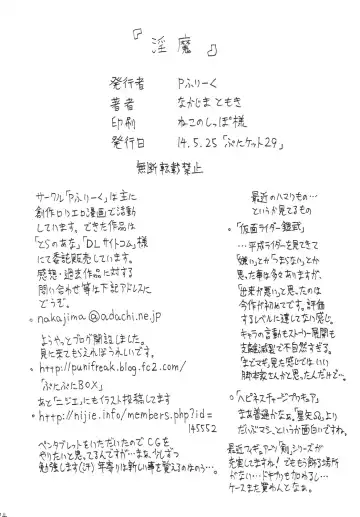 『淫魔』
発行者 Pふりーく
著者 なかじまともき
印刷 ねこのしっぽ様
発行日 14.5.25「ぷにケット29」
無断転載禁止
サークル「Pふりーく」は主に
創作ロリエロ漫画で活動
しています。できた作品は
「とらのあな」「DLサイトコム」様
にて委託販売しています。
感想・過去作品に対する
問い合わせ等は下記アドレスに
どうぞ。
○nakajima@adachi.ne.jp
ようやっとブログ開設しました。
見に来てもらえればうれしいです。
○http://punifreak.blog.fc2.com/
「ぷにぷにBOX」
あと「ニジエ」にもイラスト投稿してます
○http://nijie.info/members.php?id=
145552
ペンタブレットをいただいたのでCGを
やりたいと思ってるんですが…まぁ、少しずつ
勉強します(汗) 年寄りは新しい事を覚えるのはのう…。
最近のハマりもの…
というか見てるもの
○「仮面ライダー鎧武」
…平成ライダーを見てきて
「嫌い」とか「つまらない」とか
思った事は多々ありますが、
「出来が悪い」と思ったのは
今作が初めてです。評価
するレベルに達してない感じ。
キャラの言動もストーリー展開も
支離滅裂で不自然すぎる。
「まどマギ」見た感じではいい
脚本家さんかと思ったんだけど…。
○「ハピネスチャージプリキュア」
まあ普通かなあ。「聖矢Ω」より
だいぶマシ、というか面白いですね。
最近フィギュアーツ「剣」シリーズが
充実してますね!でももう飾る場所
がない…ドキプリも加わるし…
ケースまた買わんとなぁ。